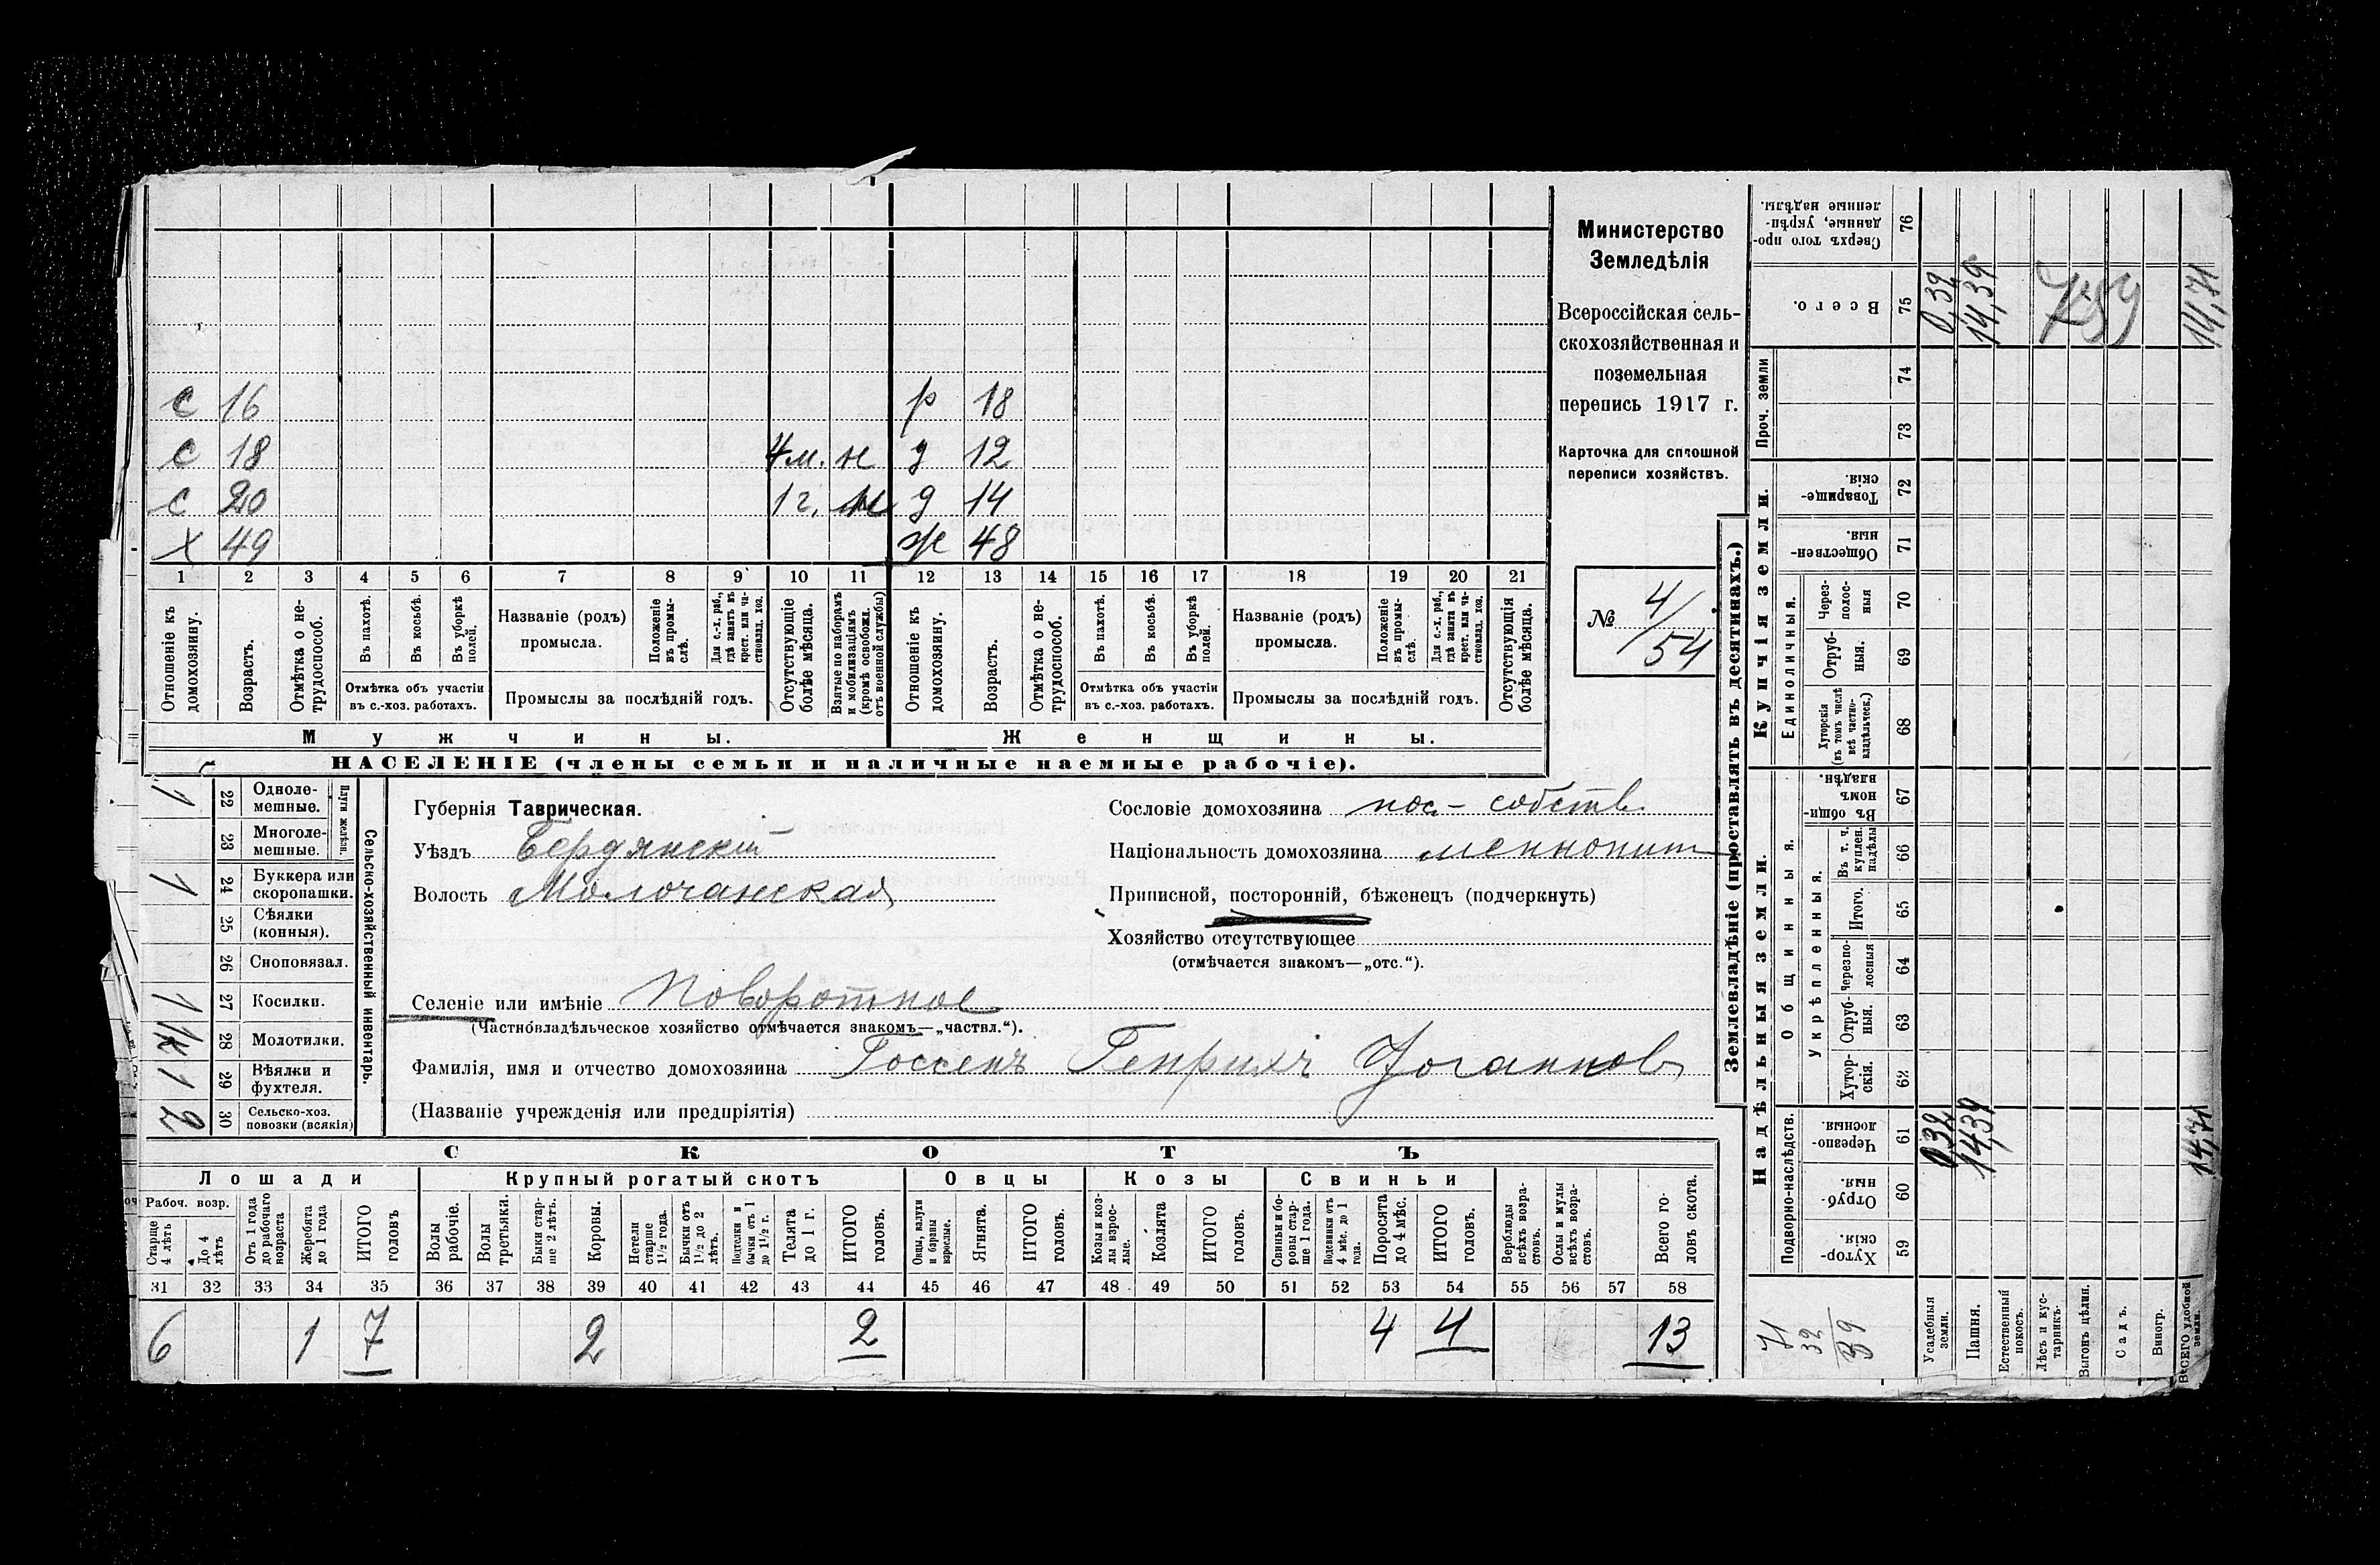 с 16 р 18
с 18 4 м. н д 12
с 20 1 г. н д 14
х 49 ж 48
1 2 3 4 5 6 7 8 9 10 11 12 13 14 15 16 17 18 19 20 21
Отношеніе къ домохозяину.
Возрастъ.
Отмѣтка о не-трудоспособ.
Въ пахотѣ.
Въ косьбѣ.
Въ уборкѣ полей.
Отмѣтка объ участіи
въ с.-хоз. работахъ.
Названіе (родъ)
промысла.
Положеніе въ промы-слѣ.
Для с.-х. раб., гдѣ занятъ въ крест. или ча-стновлад. хоз.
Промыслы за послѣдній годъ.
Отсутствующіе болѣе мѣсяца.
Взятые по наборамъ и мобилизаціямъ (кромѣ освобожд. отъ военной службы)
Отношеніе къ домохозяину.
Возрастъ.
Отмѣтка о не-трудоспособ.
Въ пахотѣ.
Въ косьбѣ.
Въ уборкѣ полей.
Отмѣтка объ участіи
въ с.-хоз. работахъ.
Названіе (родъ)
промысла.
Положеніе въ промы-слѣ.
Для с.-х. раб., гдѣ занята въ крест. или ча-стновлад. хоз.
Промыслы за послѣдній годъ.
Отсутствующія болѣе мѣсяца.
Мужчины. Женщины.
НАСЕЛЕНІЕ (члены семьи и наличные наемные рабочіе).
Министерство
Земледѣлія
Всероссійская сель-
скохозяйственная и
поземельная
перепись 1917 г.
Карточка для сплошной
переписи хозяйствъ.
№ 4/54
1 22 Одноле-мешные.
23 Многоле-мешные.
Плуги желѣзн.
1 24 Буккера или скоропашки.
25 Сѣялки (конныя).
26 Сноповязал.
1 27 Косилки.
1 к 28 Молотилки.
1 29 Вѣялки и фухтеля.
2 30 Сельско-хоз. повозки (всякія)
Сельско-хозяйственный инвентарь.
Губернія Таврическая.
Уѣздъ Бердянскій
Волость Молочанская
Сословіе домохозяина пос.- собств.
Національность домохозяина меннонит
Приписной, посторонній, бѣженецъ (подчеркнуть)
Хозяйство отсутствующее
(отмѣчается знакомъ—„отс.“).
Селеніе или имѣніе Поворотное
(Частновладѣльческое хозяйство отмѣчается знакомъ—„частвл.“).
Фамилія, имя и отчество домохозяина Госсенъ Генрихъ Иоганнов
(Названіе учрежденія или предпріятія)
СКОТЪ
Лошади Крупный рогатый скотъ Овцы Козы Свиньи
Рабоч. возр.
Старше 4 лѣтъ
До 4 лѣтъ
Отъ 1 года до рабочаго возраста
Жеребята до 1 года
ИТОГО головъ
Волы рабочіе.
Волы третьяки.
Быки стар-ше 2 лѣтъ.
Коровы.
Нетели старше 1½ года.
Бычки отъ 1½ до 2 лѣтъ.
Подтелки и бычки отъ 1 до 1½ г.
Телята до 1 г.
ИТОГО головъ.
Овцы, валухи и бараны взрослые.
Ягнята.
ИТОГО головъ.
Козы и коз-лы взрос-лые.
Козлята
ИТОГО головъ.
Свиньи и бо-ровы стар-ше 1 года.
Подсвинки отъ 4 мѣс. до 1 года.
Поросята до 4 мѣс.
ИТОГО головъ.
Верблюды всѣхъ возра-стовъ.
Ослы и мулы всѣхъ возра-стовъ.
Всего го-ловъ скота.
31 32 33 34 35 36 37 38 39 40 41 42 43 44 45 46 47 48 49 50 51 52 53 54 55 56 57 58
6 1 7 2 2 4 4 13
Землевладѣніе (проставлять въ десятинахъ.)
Купчія земли.
Надѣльныя земли.
Сверхъ того про-данные, укрѣп-ленные надѣлы. 76
Всего. 75 0,39 14,39 14,71
759
Проч. земли 74 73
Товарище-скія. 72
Обществен-ныя. 71
Единоличныя.
Через-полос-ныя 70
Отруб-ныя. 69
Хуторскія (въ томъ числѣ всѣ частно-владѣльческ.) 68
Общинныя.
Въ общин-номъ владѣн. 67
Укрѣпленныя.
Въ т. ч. куплен. надѣлы 66
Итого. 65
Черезпо-лосныя 64
Отруб-ныя. 63
Хутор-скія. 62
Подворно-наслѣдств.
Черезпо-лосныя. 61 0,32 14,39 14,71
Отруб-ныя. 60
Хутор-скія. 59
71
32
39
Усадебныя земли.
Пашня.
Естественный покосъ.
Лѣсъ и кус-тарникъ.
Выгонъ цѣлин.
Садъ.
Виногр.
ВСЕГО удобной земли.